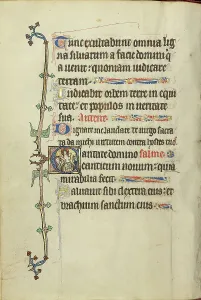 Tunc exultabunt omnia lig
na silvarum a facie domini q
a venit: quoniam iudicare
terram
Iudicabit orbem terre in equi
tate: et populos in veritate
sua. Antene
Dignare me laudare te virgo sacra
ta da michi virtutem contra hostes tuos
Cantate domino salme
canticum novum: quia
mirabilia fecit
Saluavit sibi dextera eius: et
brachium sanctum eius